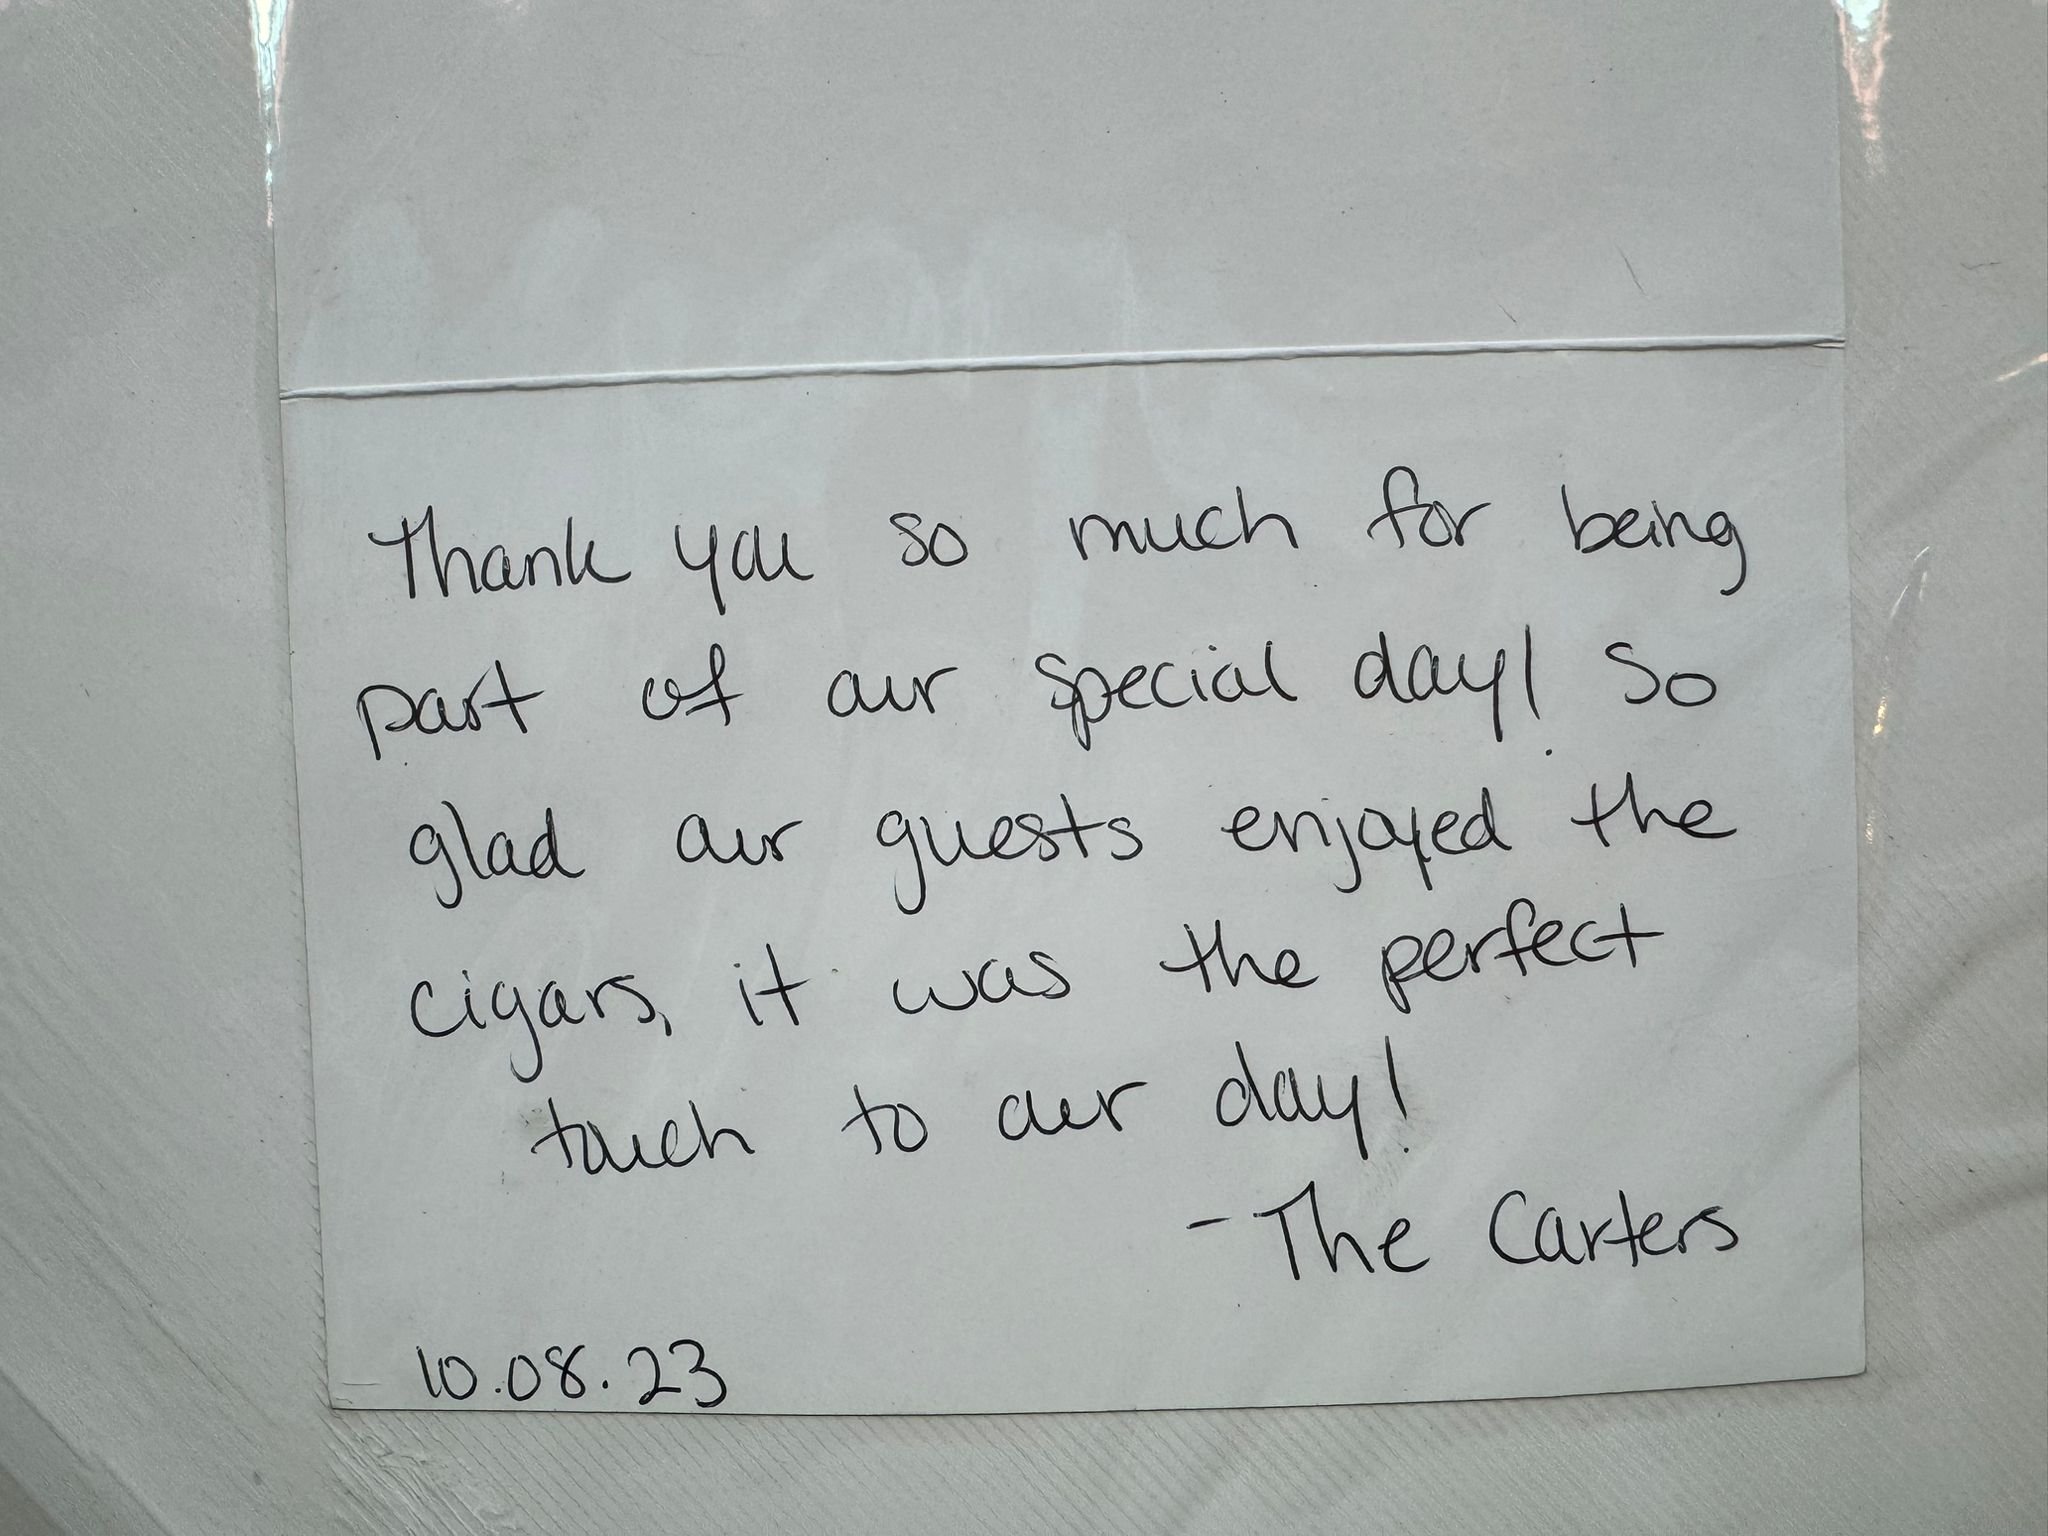 Thank you so much for being
part of our special day! So
glad our guests enjoyed the
cigars, it was the perfect
touch to our day!
- The Carters
10.08.23